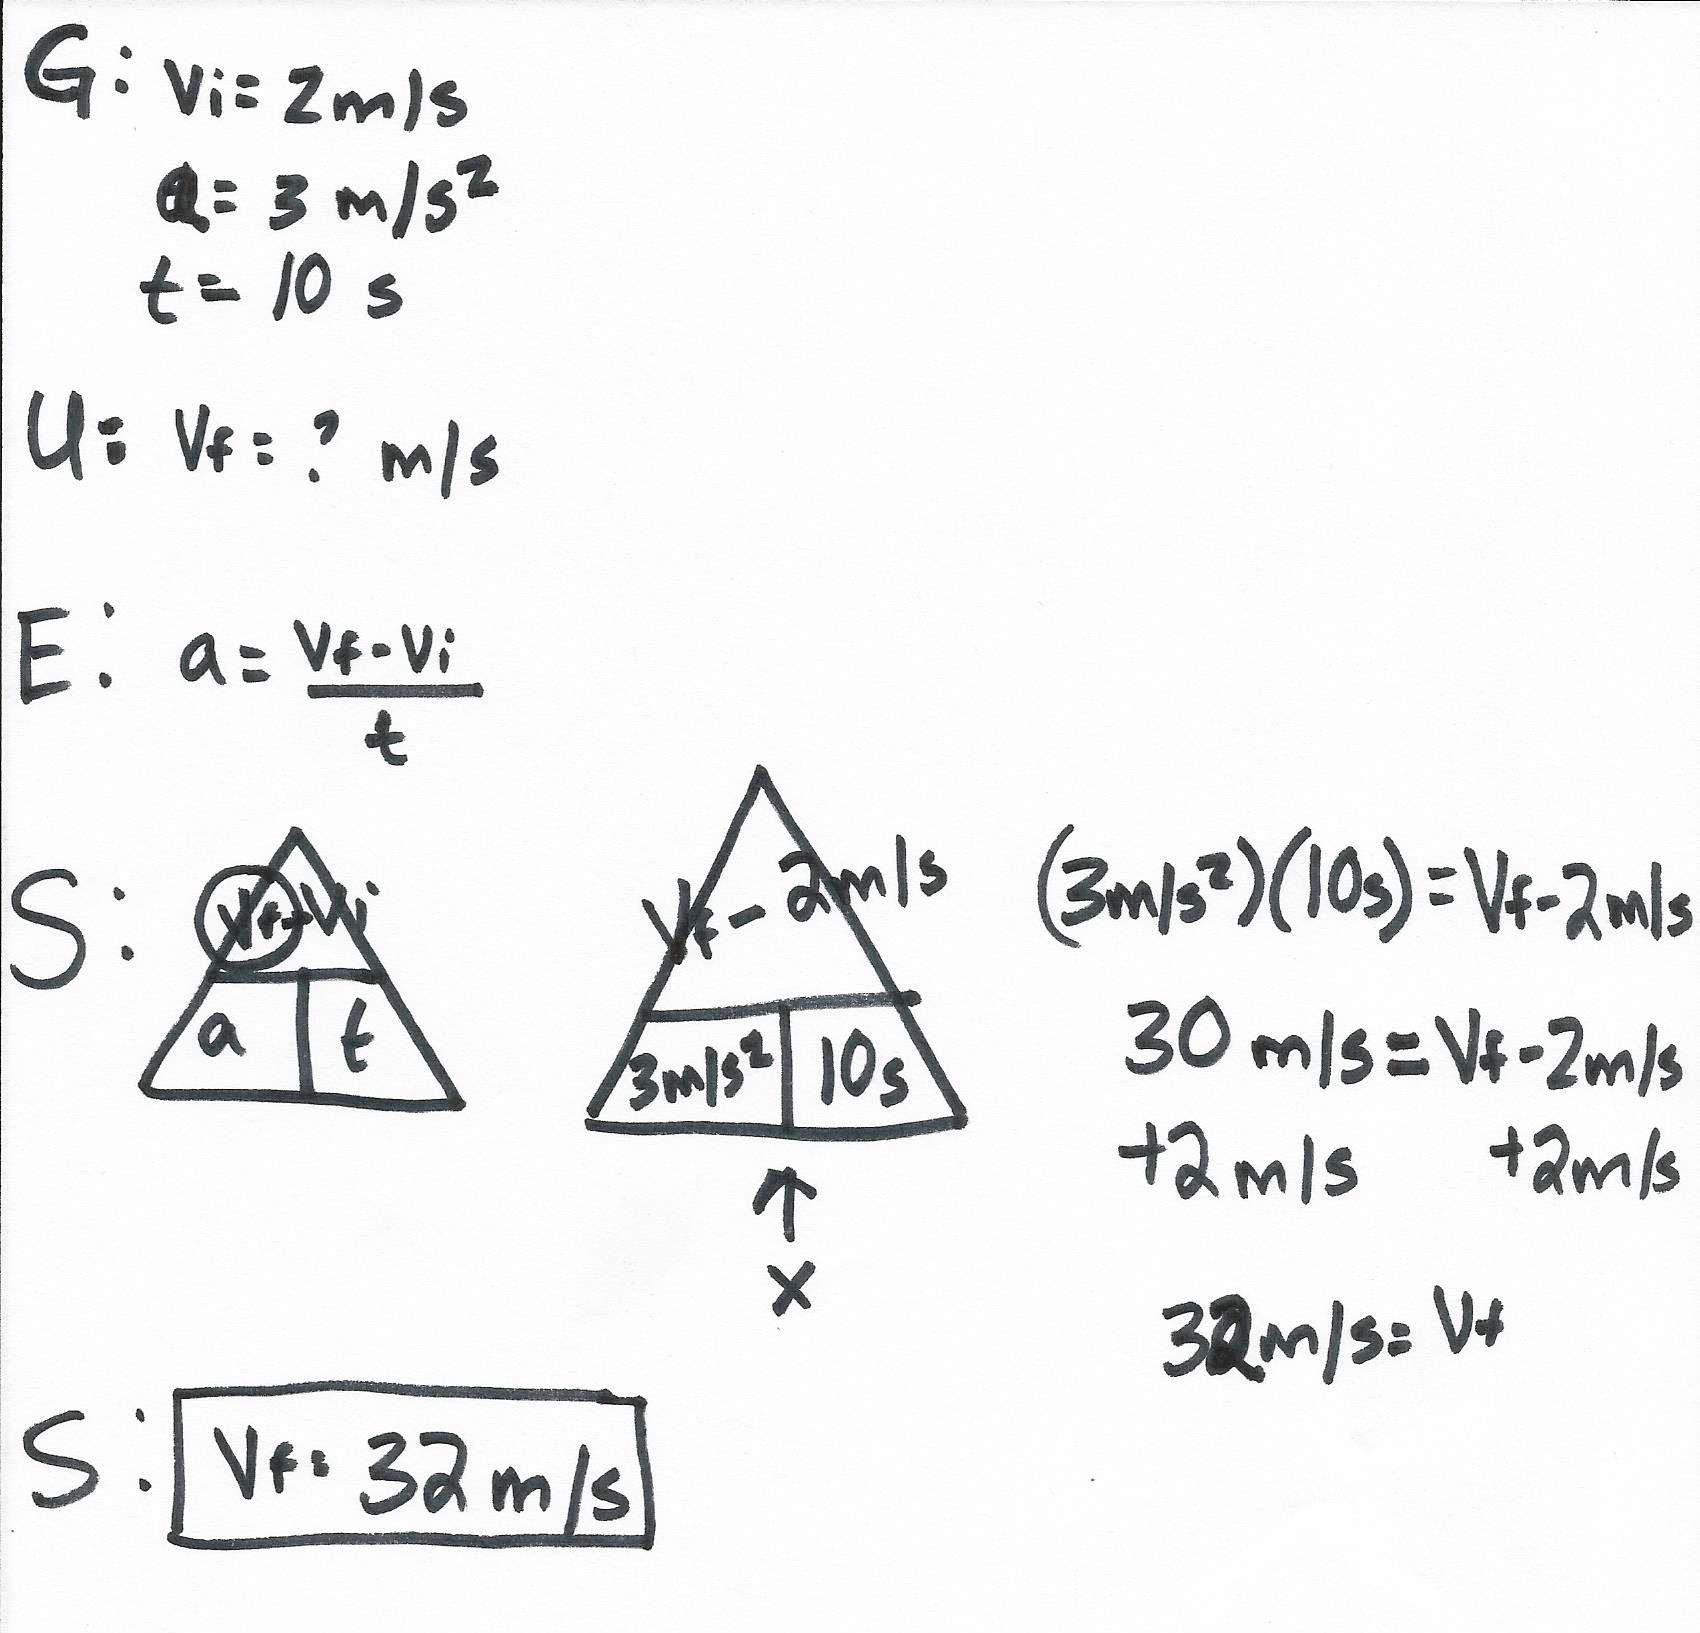 G: Vi= 2m/s
a= 3 m/s²
t= 10 s
U: Vf= ? m/s
E: a= Vf-Vi
t
S: Vf-Vi
a t
Vf - 2m/s
3m/s² 10s
↑
x
(3m/s²)(10s)=Vf-2m/s
30 m/s=Vf-2m/s
+2m/s +2m/s
32m/s= Vf
S: Vf= 32m/s